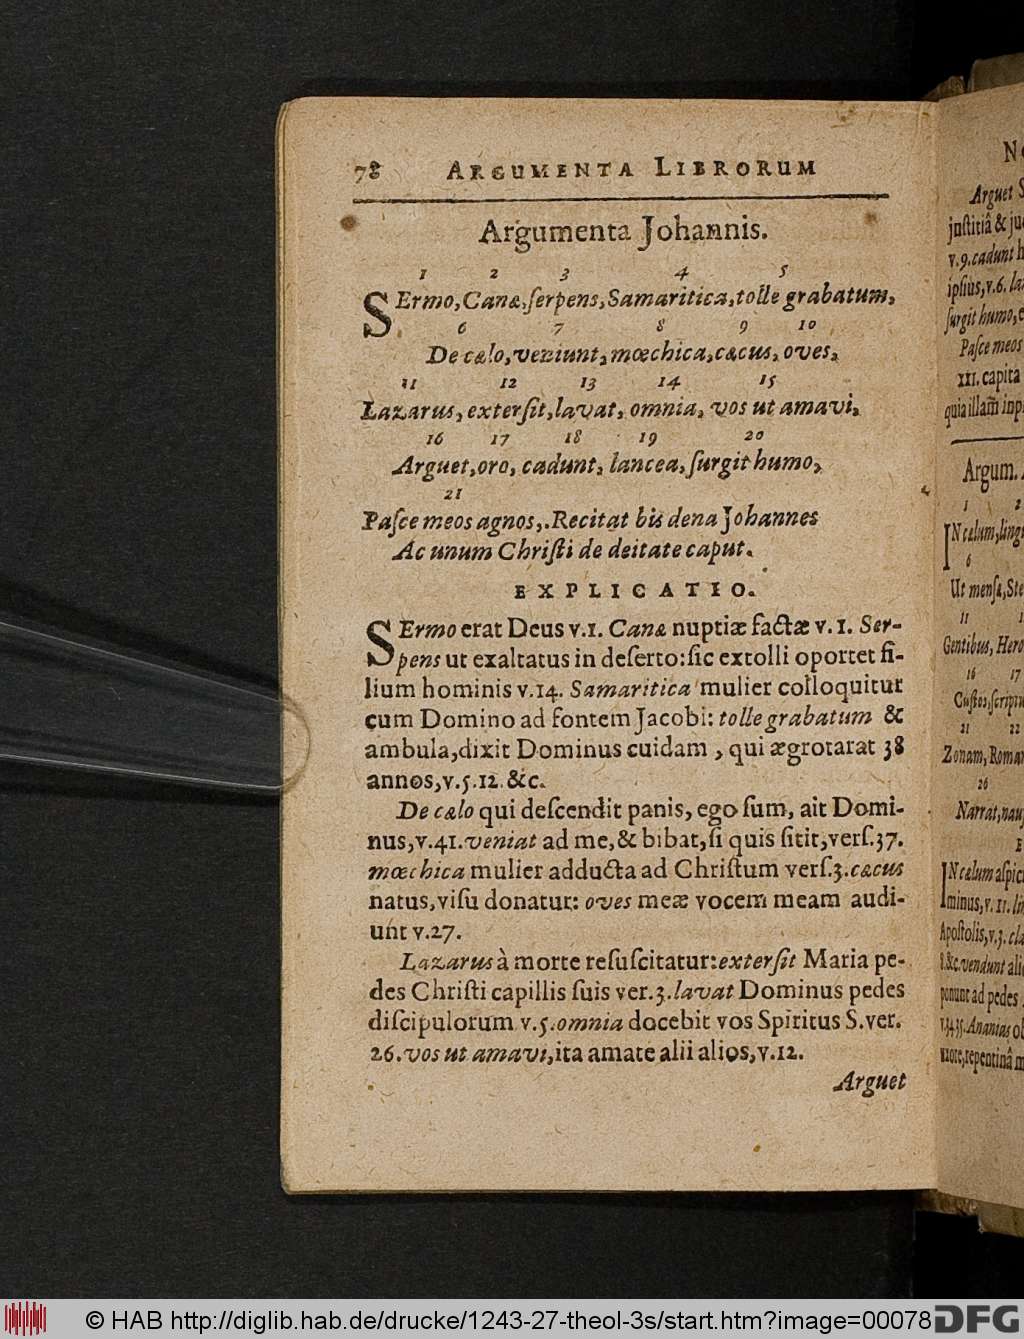 78 ARGUMENTA LIBRORUM
Argumenta Johannis.
1 2 3 4 5
SErmo, Canæ, ſerpens, Samaritica, tolle grabatum,
6 7 8 9 10
De cælo, veniunt, mœchica, cæcus, oves,
11 12 13 14 15
Lazarus, exterſit, lavat, omnia, vos ut amavi,
16 17 18 19 20
Arguet, oro, cadunt, lancea, ſurgit humo,
21
Paſce meos agnos,. Recitat bis dena Johannes
Ac unum Chriſti de deitate caput.
EXPLICATIO.
SErmo erat Deus v.1. Canæ nuptiæ factæ v. 1. Ser-
pens ut exaltatus in deſerto: ſic extolli oportet fi-
lium hominis v.14. Samaritica mulier colloquitur
cum Domino ad fontem Jacobi: tolle grabatum &
ambula, dixit Dominus cuidam, qui ægrotarat 38
annos, v.5.12. &c.
De cælo qui deſcendit panis, ego ſum, ait Domi-
nus, v.41. veniat ad me, & bibat, ſi quis ſitit, verſ.37.
mœchica mulier adducta ad Chriſtum verſ.3. cæcus
natus, viſu donatur: oves meæ vocem meam audi-
unt v.27.
Lazarus à morte reſuſcitatur: exterſit Maria pe-
des Chriſti capillis ſuis ver.3. lavat Dominus pedes
diſcipulorum v.5. omnia docebit vos Spiritus S. ver.
26. vos ut amavi, ita amate alii alios, v.12.
Arguet
Arguet
juſtitiâ & ju
v.9. cadunt
ipſius, v.6.
ſurgit humo,
Paſce meos
XII. capita
quia illam
Argum.
1 2
IN cælum, ling
6
Ut menſæ, Ste
11
Gentibus, Hero
16 17
Cuſtos, ſcriptu
21 22
Zonam, Roman
26
Narrat, nau
E
IN cælum aſpic
minus, v. 11. lin
Apoſtolis, v.3. cla
8.&c. vendunt
ponunt ad pedes
v.34.35. Ananias
uxore, repentinâ m
© HAB http://diglib.hab.de/drucke/1243-27-theol-3s/start.htm?image=00078
DFG